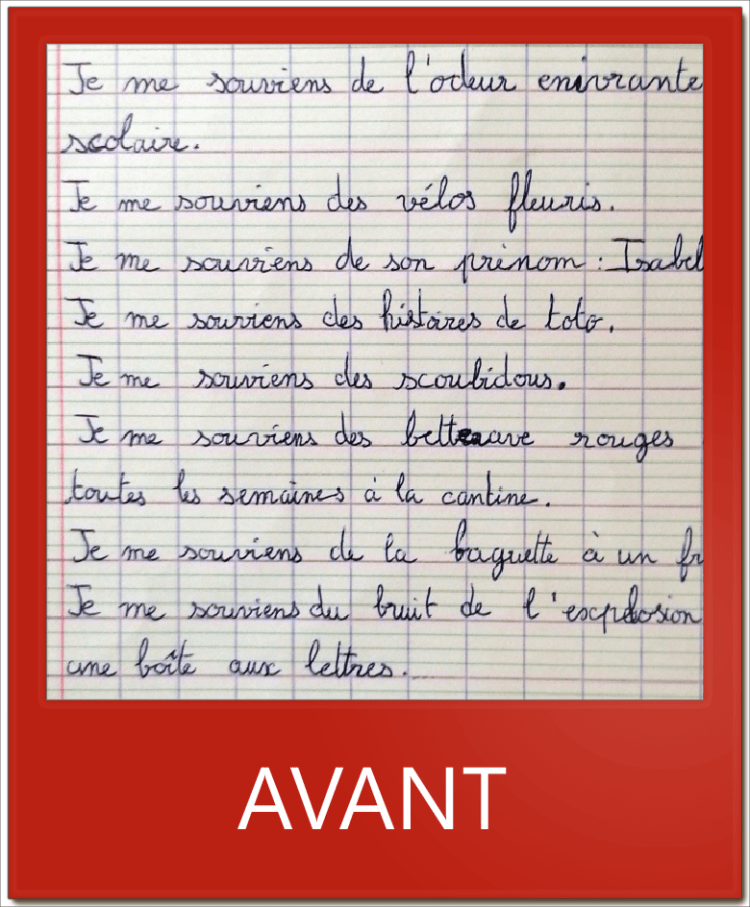 Je me souviens de l'odeur enivrante
scolaire.
Je me souviens des vélos fleuris.
Je me souviens de son prénom : Isabel
Je me souviens des histoires de toto.
Je me souviens des scoubidous.
Je me souviens des betterave rouges
toutes les semaines à la cantine.
Je me souviens de la baguette à un fr
Je me souviens du bruit de l'explosion
une boîte aux lettres.
AVANT